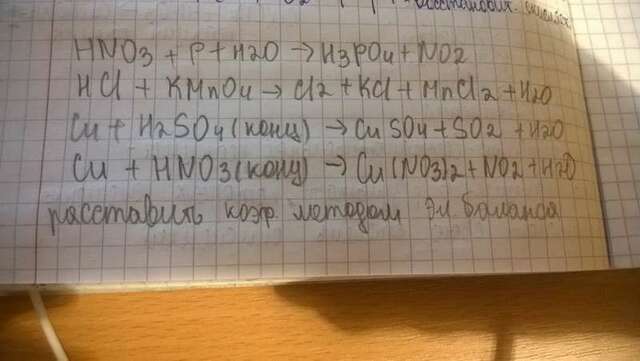 расставить
HNO3 + P + H2O → H3PO4 + NO2
HCl + KMnO4 → Cl2 + KCl + MnCl2 + H2O
Cu + H2SO4 (конц) → CuSO4 + SO2 + H2O
Cu + HNO3 (конц) → Cu(NO3)2 + NO2 + H2O
расставить коэф методом эл баланса